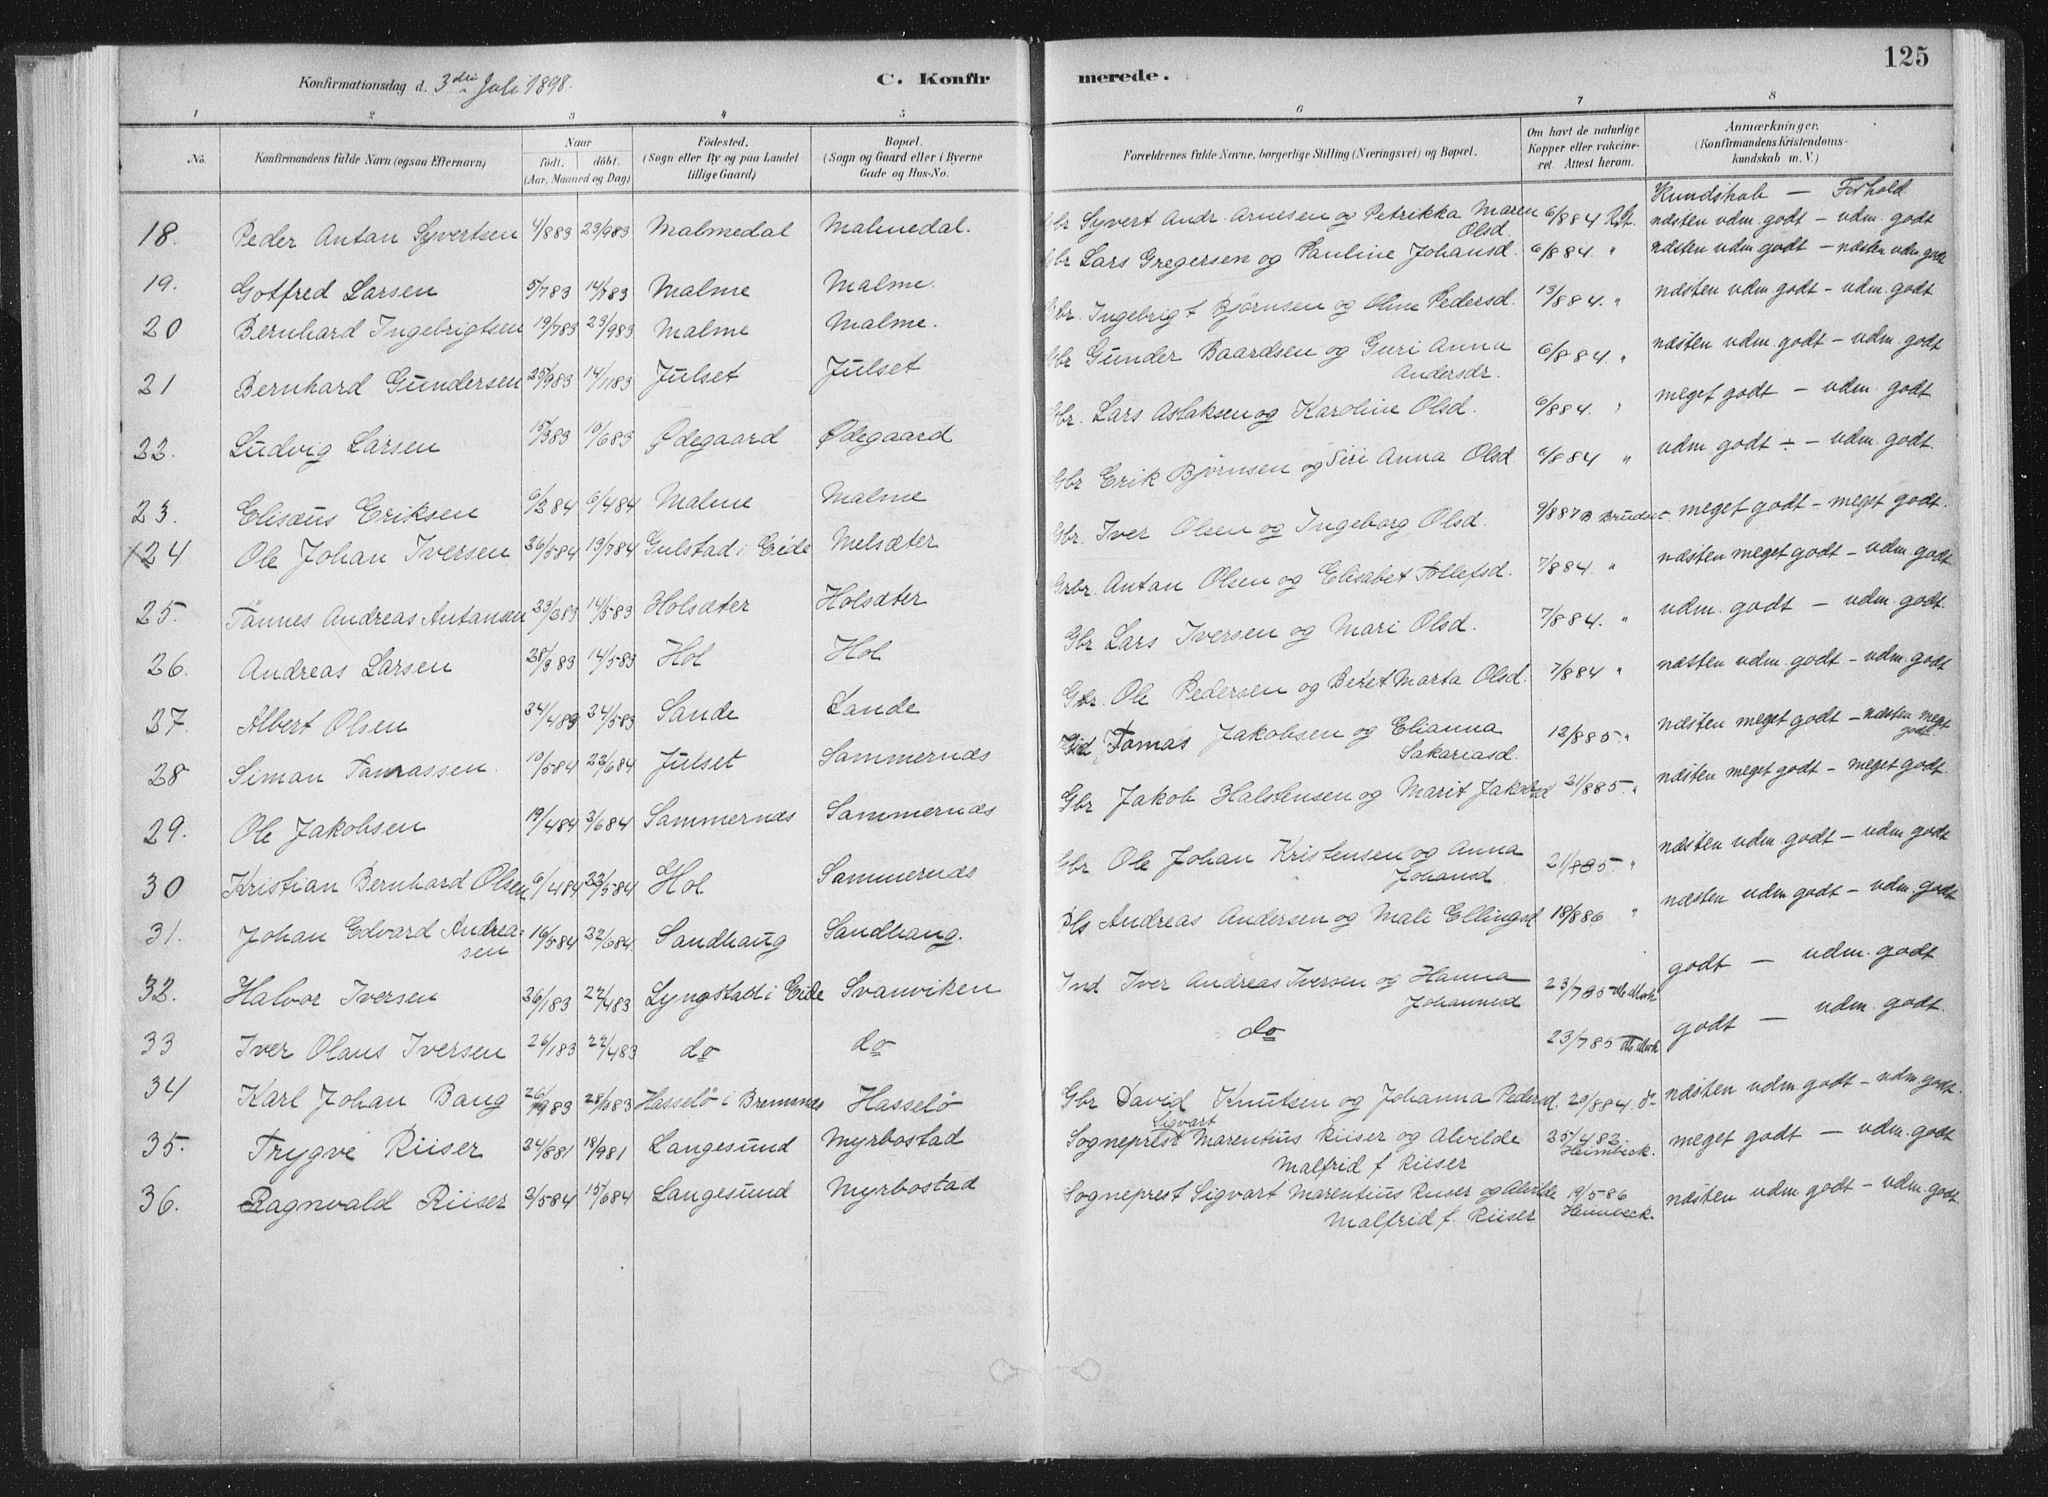 125
Konfirmationsdag d. 3die Juli 1898.
C. Konfir merede.
1 2 3 4 5 6 7 8
No. Konfirmandens fulde Navn (ogsaa Efternavn) Naar födt. döbt. (Aar, Maaned og Dag) Födested. (Sogn eller By og paa Landet tillige Gaard) Bopæl. (Sogn og Gaard eller i Byerne Gade og Hus-No. Forældrenes fulde Navne, borgerlige Stilling (Næringsvei) og Bopæl. Om havt de naturlige Kopper eller vakcineret. Attest herom. Anmærkninger. (Konfirmandens Kristendomskundskab m. V.)
Kundskab — Forhold
18. Peder Antan Syvertsen 4/883 23/983 Malmedal Malmedal. Gbr Syvert Andr. Arnesen og Petrikka Maren Olsd. 6/884 næsten udm. godt – udm. godt
19. Gotfred Larsen 5/783 14/783 Malme Malme. Gbr Lars Gregersen og Pauline Johansd. 6/884 " næsten udm godt – næsten udm godt
20 Bernhard Ingebrigtsen 19/783 23/983 Malme Malme. Gbr. Ingebrigt Bjørnsen og Oline Pedersd. 13/884. " næsten udm godt – udm. godt
21 Bernhard Gundersen 25/983 14/1183 Julset Julset Gbr Gunder Baardsen og Guri Anna Andersdr. 6/884 " næsten udm. godt – udm. godt
22. Ludvig Larsen 15/383 10/683 Ødegaard Ødegaard Gbr. Lars Aslaksen og Karoline Olsd. 6/884. " meget godt – udm. godt
23. Elisæus Eriksen 6/284 6/484 Malme Malme Gbr Erik Bjørnsen og Siri Anna Olsd. 6/884 " udm. godt ÷ – udm. godt
×24 Ole Johan Iversen 26/584 13/784 Gulstad i Eide Melsæter Gbr. Iver Olsen og Ingeborg Olsd. 9/887 meget godt – meget godt.
25. Tønnes Andreas Antansen 23/283 14/583 Holsæter Holsæter Gbr. Antan Olsen og Elisabet Tollefsd. 7/884. " næsten meget godt – udm. godt
26. Andreas Larsen 28/383 14/583 Hol Hol Gbr Lars Iversen og Mari Olsd. 7/884. " udm. godt – udm. godt.
27. Albert Olsen 24/483 24/583 Sande Sande Gbr. Ole Pedersen og Beret Marta Olsd. 7/884 " næsten udm. godt – udm. godt
28 Siman Tamassen 10/584 22/684 Julset Sammernæs Tomas Jakobsen og Elianna Sakariasd. 12/885. " næsten meget godt – næsten meget godt
29. Ole Jakobsen 19/484 2/684 Sammernæs Sammernæs Gbr Jakob Halstensen og Marit Jakobsd 21/885. " næsten meget godt – meget godt.
30 Kristian Bernhard Olsen 6/484 22/584 Hol Sammernæs Gbr Ole Johan Kristensen og Anna Johansd 21/885. " næsten udm. godt – udm. godt
31. Johan Edvard Andreasen 16/584 22/684. Sandhaug Sandhaug. Andreas Andersen og Mali Ellingsd 18/886 " næsten udm. godt – udm. godt
32. Halvor Iversen 26/183 22/483 Lyngstad i Eide Svanviken Ind Iver Andreas Iversen og Hanna Johannesd 23/785 godt – udm. godt
33 Iver Olaus Iversen 26/183 22/483 do do do 23/785 godt – udm. godt.
34 Karl Johan Bang Hasselö i Bremsnes Hasselö Gbr David Knutsen og Johanna Pedersd. 20/884. næsten udm. godt – udm. godt.
35. Trygve Riiser 24/881 18/981 Langesund Myrbostad Sogneprest Sigvart Marentius Riiser og Alvilde Malfrid f Riiser 25/482. Heimbeck. meget godt – udm. godt
36. Ragnvald Riiser 2/584 15/684 Langesund Myrbostad Sogneprest Sigvart Marentius Riiser og Alvilde Malfrid f. Riiser 19/586 Heimbeck. næsten udm godt – udm. godt.